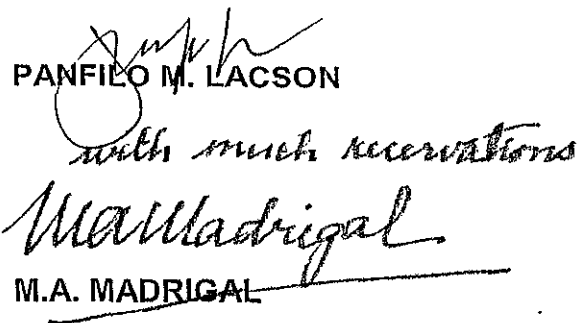 PANFILO M. LACSON
with much reservations
MAMadrigal
M.A. MADRIGAL